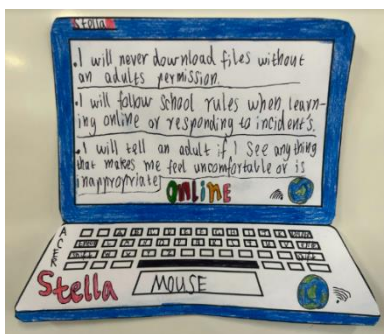 Stella
. I will never download files without
an adults permission.
. I will follow school rules when, learn-
ing online or responding to incident's.
. I will tell an adult if I See any thing
that makes me feel uncomfortable or is
inappropriate
OnlinE
ACER
Stella
MOUSE